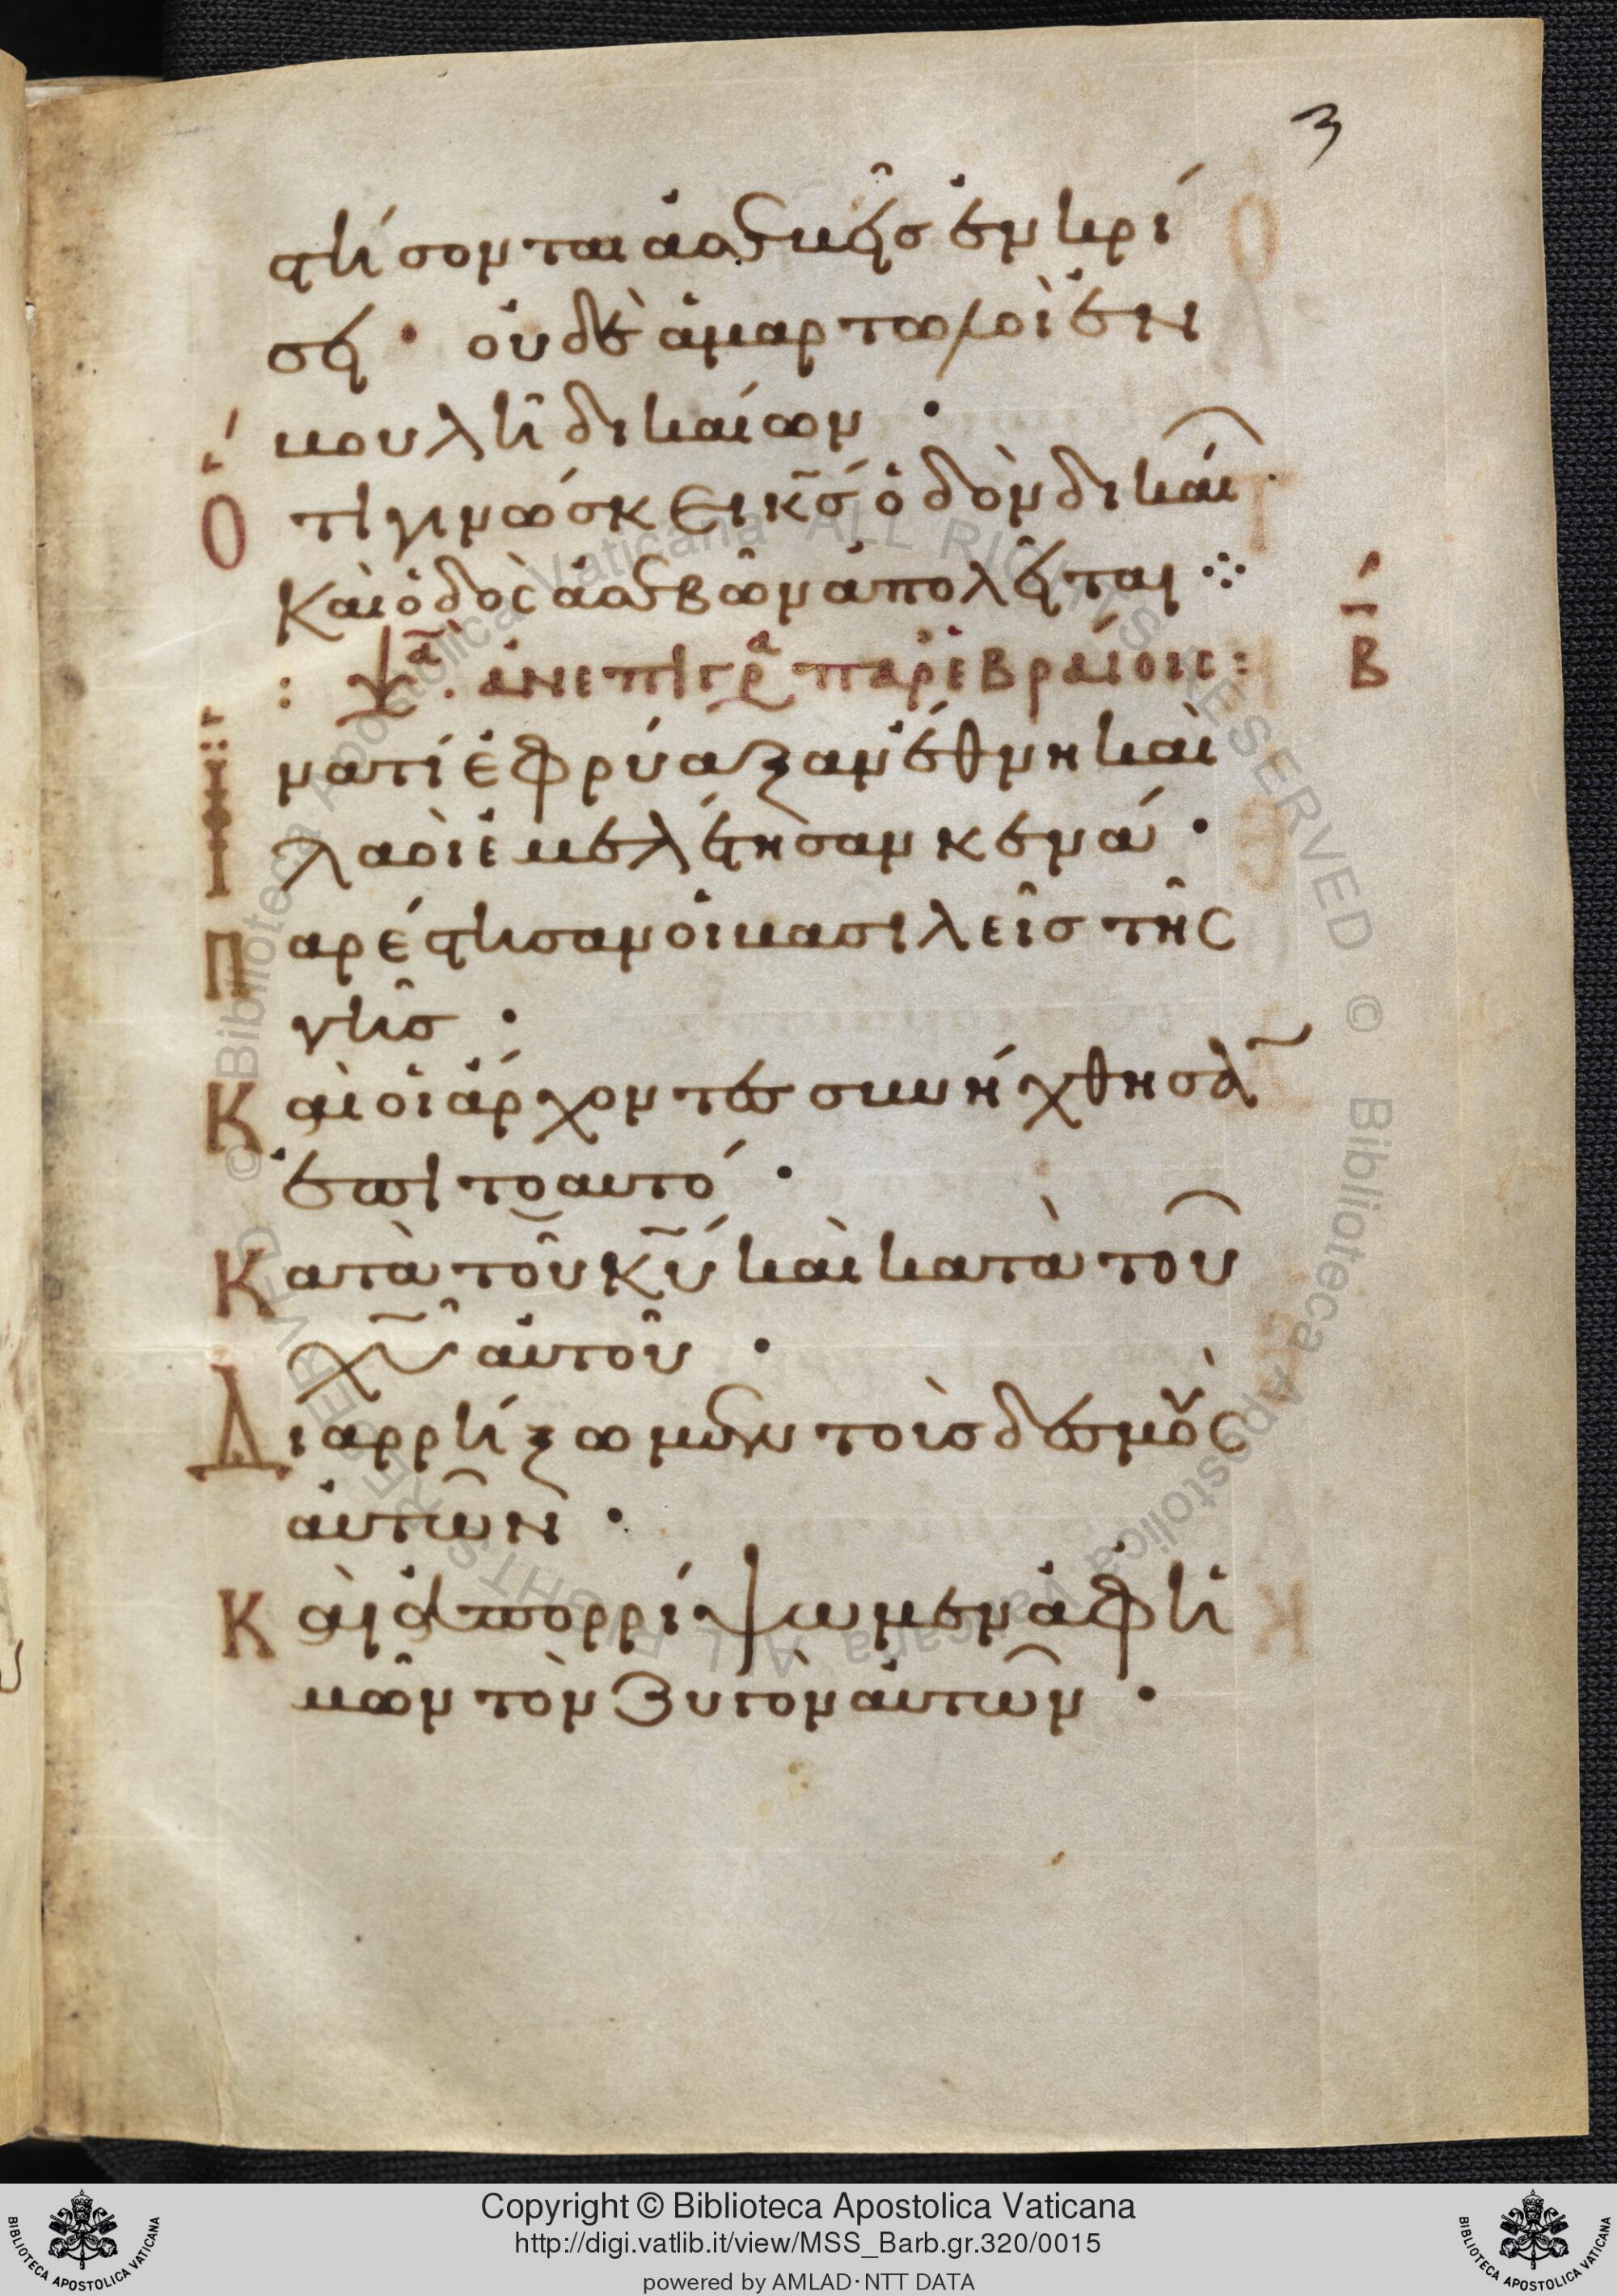 3
στήσονται ἀσεβεῖς ἐν κρί
σει· οὐδὲ ἁμαρτωλοὶ ἐν
βουλῆ δικαίων·
Ὅτι γινώσκει κς ὁδὸν δικαί
Καὶ ὁδὸς ἀσεβῶν ἀπολεῖται ⁘
: ψα. ἀνεπιγρα παρ' ἑβραίοις: Β
Ἵνατί ἐφρύαξαν ἔθνη καὶ
λαοὶ ἐμελέτησαν κενά·
Παρέστησαν οἱ βασιλεῖς τῆς
γῆς·
Καὶ οἱ ἄρχοντες συνήχθησαν
ἐπι τοαυτό·
Κατὰ τοῦ κυ καὶ κατὰ τοῦ
χυ αὐτοῦ·
Διαρρήξωμεν τοὺς δεσμοὺς
αὐτῶν·
Καὶ ἀπορρίψωμεν ἀφ' ἡ
μῶν τὸν ζυγὸν αὐτῶν·
© Biblioteca Apostolica Vaticana ALL RIGHTS RESERVED © Biblioteca Apostolica Vaticana ALL RIGHTS RESERVED
Copyright © Biblioteca Apostolica Vaticana
http://digi.vatlib.it/view/MSS_Barb.gr.320/0015
powered by AMLAD·NTT DATA
BIBLIOTECA APOSTOLICA VATICANA
BIBLIOTECA APOSTOLICA VATICANA